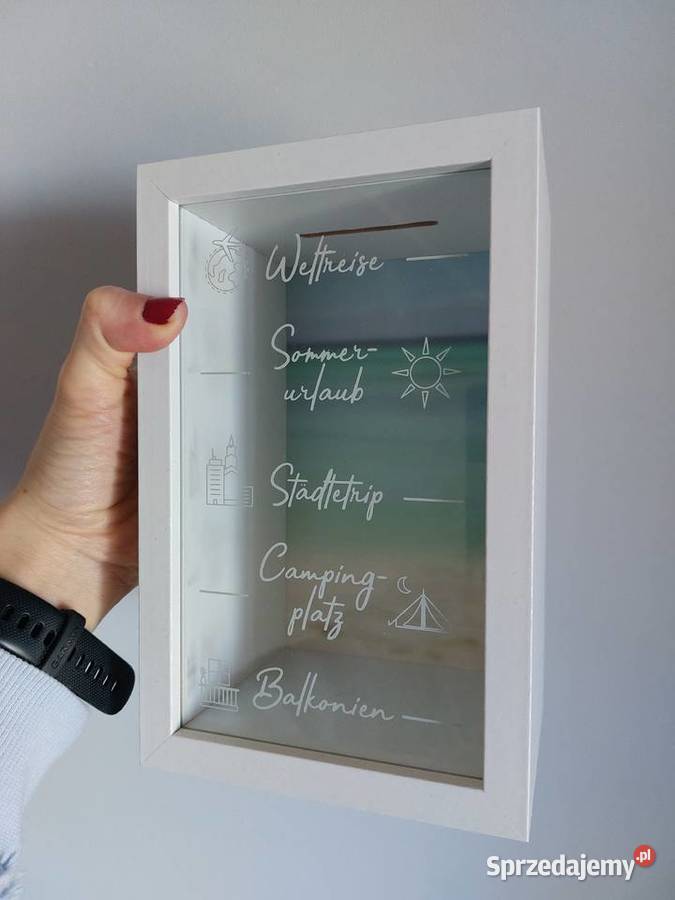 Weltreise
Sommer-
urlaub
Städtetrip
Camping-
platz
Balkonien
GARMIN
Sprzedajemy.pl